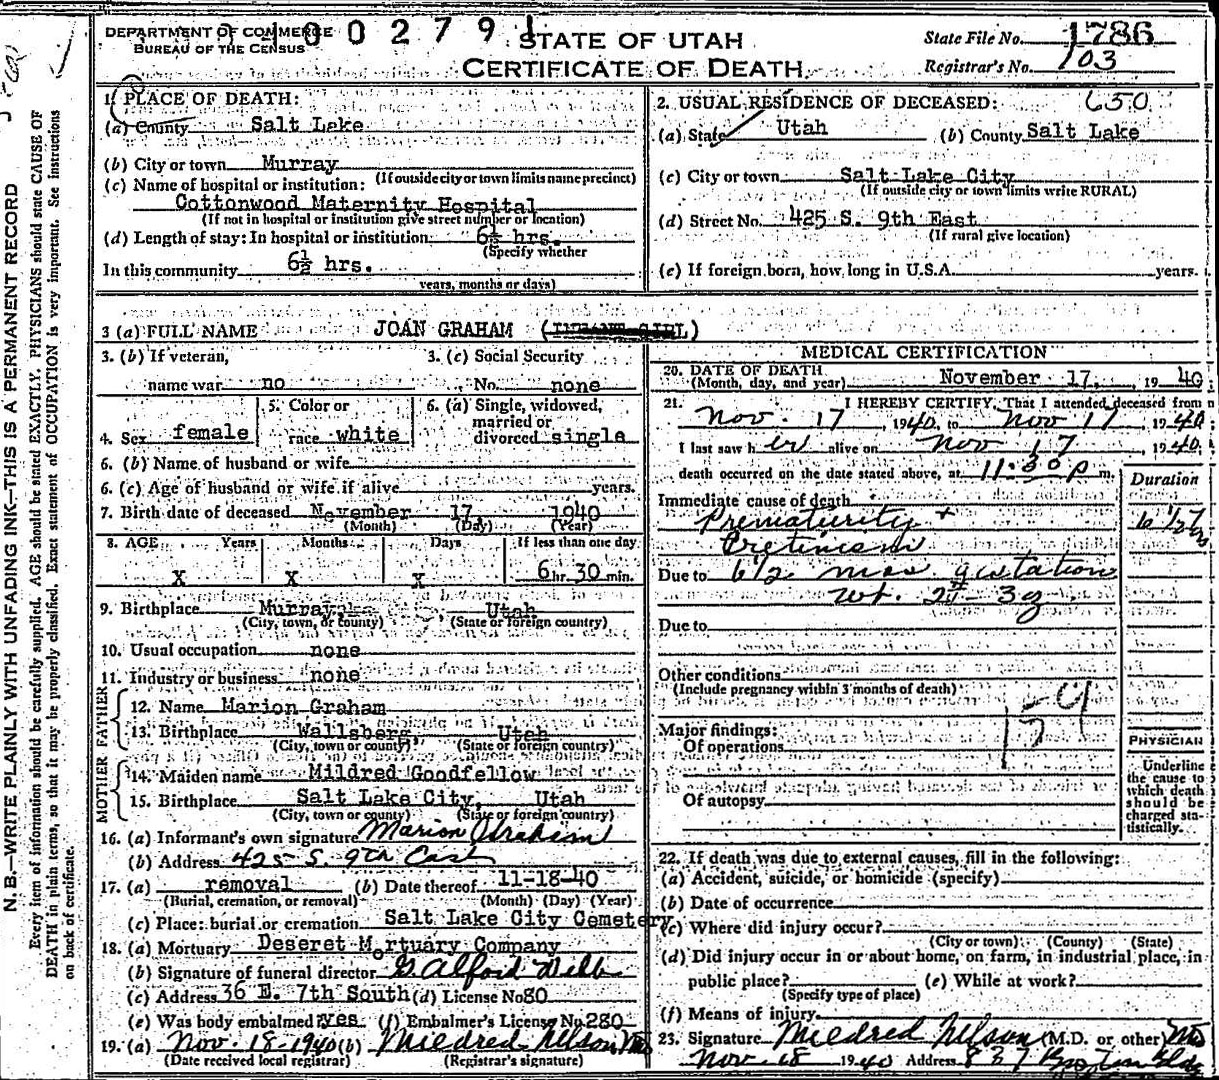 DEPARTMENT OF COMMERCE
BUREAU OF THE CENSUS
100279
STATE OF UTAH
CERTIFICATE OF DEATH
State File No. 1786
Registrar's No. 103
N. B.—WRITE PLAINLY WITH UNFADING INK—THIS IS A PERMANENT RECORD
Every item of information should be carefully supplied. AGE should be stated EXACTLY. PHYSICIANS should state CAUSE OF
DEATH in plain terms, so that it may be properly classified. Exact statement of OCCUPATION is very important. See instructions
on back of certificate.
1. PLACE OF DEATH:
(a) County Salt Lake
(b) City or town Murray
(If outside city or town limits name precinct)
(c) Name of hospital or institution:
Cottonwood Maternity Hospital
(If not in hospital or institution give street number or location)
(d) Length of stay: In hospital or institution 6½ hrs.
(Specify whether
In this community 6½ hrs.
years, months or days)
2. USUAL RESIDENCE OF DECEASED: 650
(a) State Utah (b) County Salt Lake
(c) City or town Salt Lake City
(If outside city or town limits write RURAL)
(d) Street No. 425 S. 9th East
(If rural give location)
(e) If foreign born, how long in U.S.A. years.
3 (a) FULL NAME JOAN GRAHAM (INFANT GIRL)
3. (b) If veteran, 3. (c) Social Security
name war no No. none
4. Sex female
5. Color or
race white
6. (a) Single, widowed,
married or
divorced single
6. (b) Name of husband or wife
6. (c) Age of husband or wife if alive years.
7. Birth date of deceased November 17, 1940
(Month) (Day) (Year)
8. AGE Years Months Days If less than one day
X X X 6 hr. 30 min.
9. Birthplace Murray, Utah
(City, town, or county) (State or foreign country)
10. Usual occupation none
11. Industry or business none
FATHER
12. Name Marion Graham
13. Birthplace Wallsberg, Utah
(City, town or county) (State or foreign country)
MOTHER
14. Maiden name Mildred Goodfellow
15. Birthplace Salt Lake City, Utah
(City, town or county) (State or foreign country)
16. (a) Informant's own signature Marion Graham
(b) Address 425 S. 9th East
17. (a) removal (b) Date thereof 11-18-40
(Burial, cremation, or removal) (Month) (Day) (Year)
(c) Place: burial or cremation Salt Lake City Cemetery
18. (a) Mortuary Deseret Mortuary Company
(b) Signature of funeral director G. Alford
(c) Address 36 E. 7th South (d) License No 80
(e) Was body embalmed? yes (f) Embalmer's License No. 280
19. (a) Nov. 18-1940 (b) Mildred Nelson, MD
(Date received local registrar) (Registrar's signature)
MEDICAL CERTIFICATION
20. DATE OF DEATH
(Month, day, and year) November 17, 1940
21. I HEREBY CERTIFY, That I attended deceased from
Nov. 17, 1940, to Nov 17, 1940;
I last saw her alive on Nov 17 1940;
death occurred on the date stated above, at 11:30 p m.
Duration
Immediate cause of death
Prematurity + 6 1/2 hrs
Cretinism
Due to 6 1/2 mos gestation
wt. 2# - 3
Due to
Other conditions
(Include pregnancy within 3 months of death)
Major findings:
Of operations
Of autopsy
PHYSICIAN
Underline
the cause to
which death
should be
charged sta-
tistically.
22. If death was due to external causes, fill in the following:
(a) Accident, suicide, or homicide (specify)
(b) Date of occurrence
(c) Where did injury occur?
(City or town) (County) (State)
(d) Did injury occur in or about home, on farm, in industrial place, in
public place? (e) While at work?
(Specify type of place)
(f) Means of injury
23. Signature Mildred Nelson (M.D. or other) MD
Nov. 18 1940 Address 837 Boston Bldg